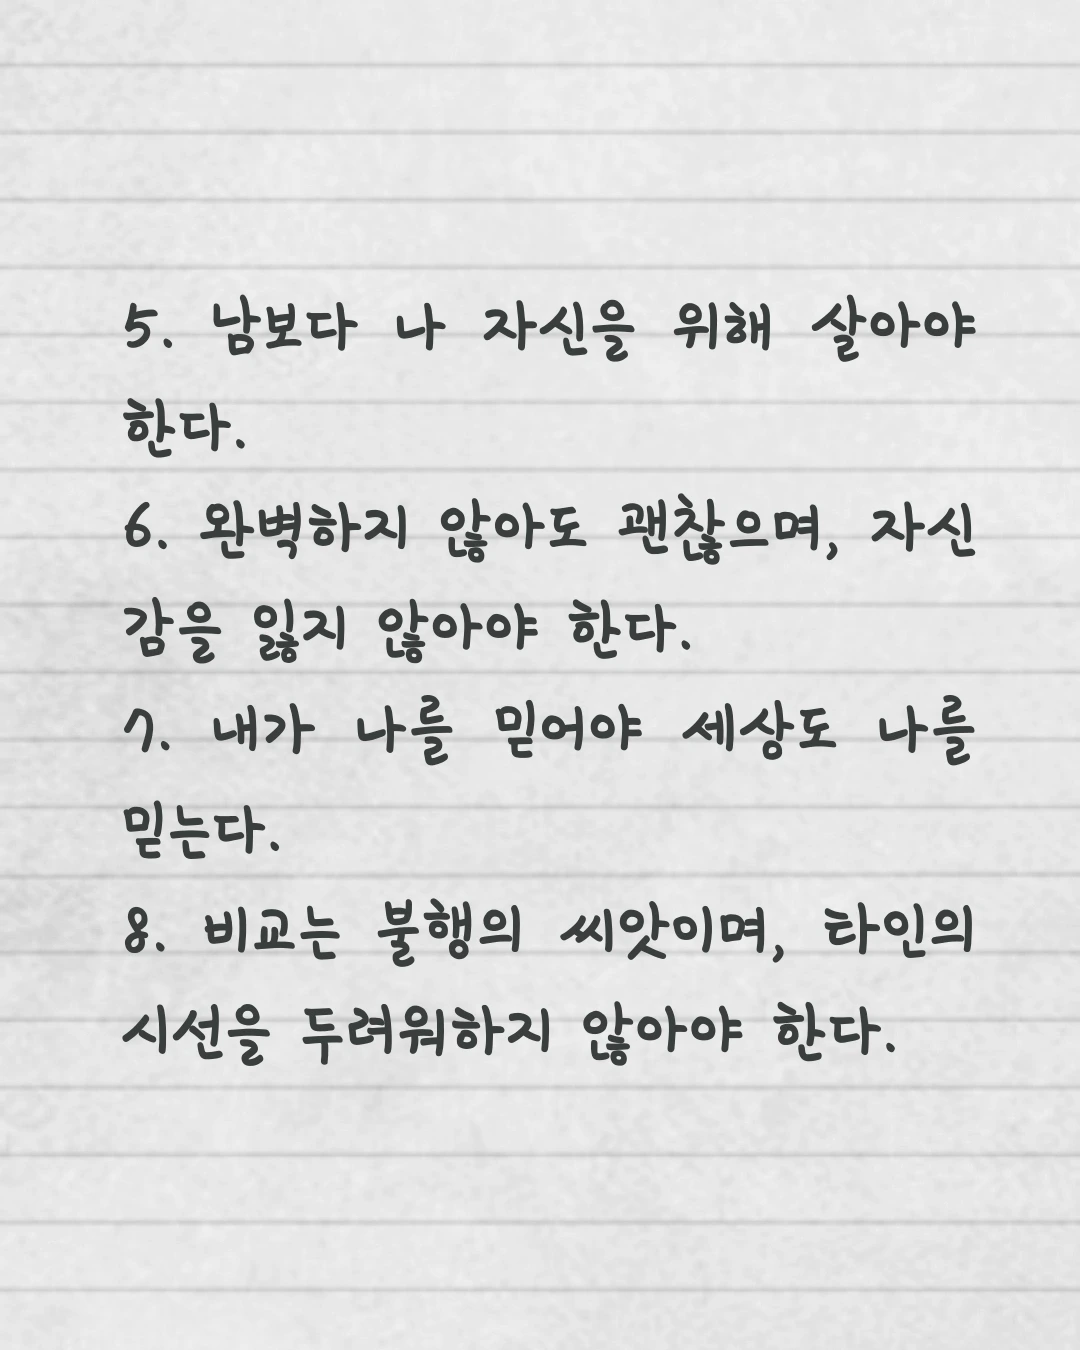 5. 남보다 나 자신을 위해 살아야
한다.
6. 완벽하지 않아도 괜찮으며, 자신
감을 잃지 않아야 한다.
7. 내가 나를 믿어야 세상도 나를
믿는다.
8. 비교는 불행의 씨앗이며, 타인의
시선을 두려워하지 않아야 한다.